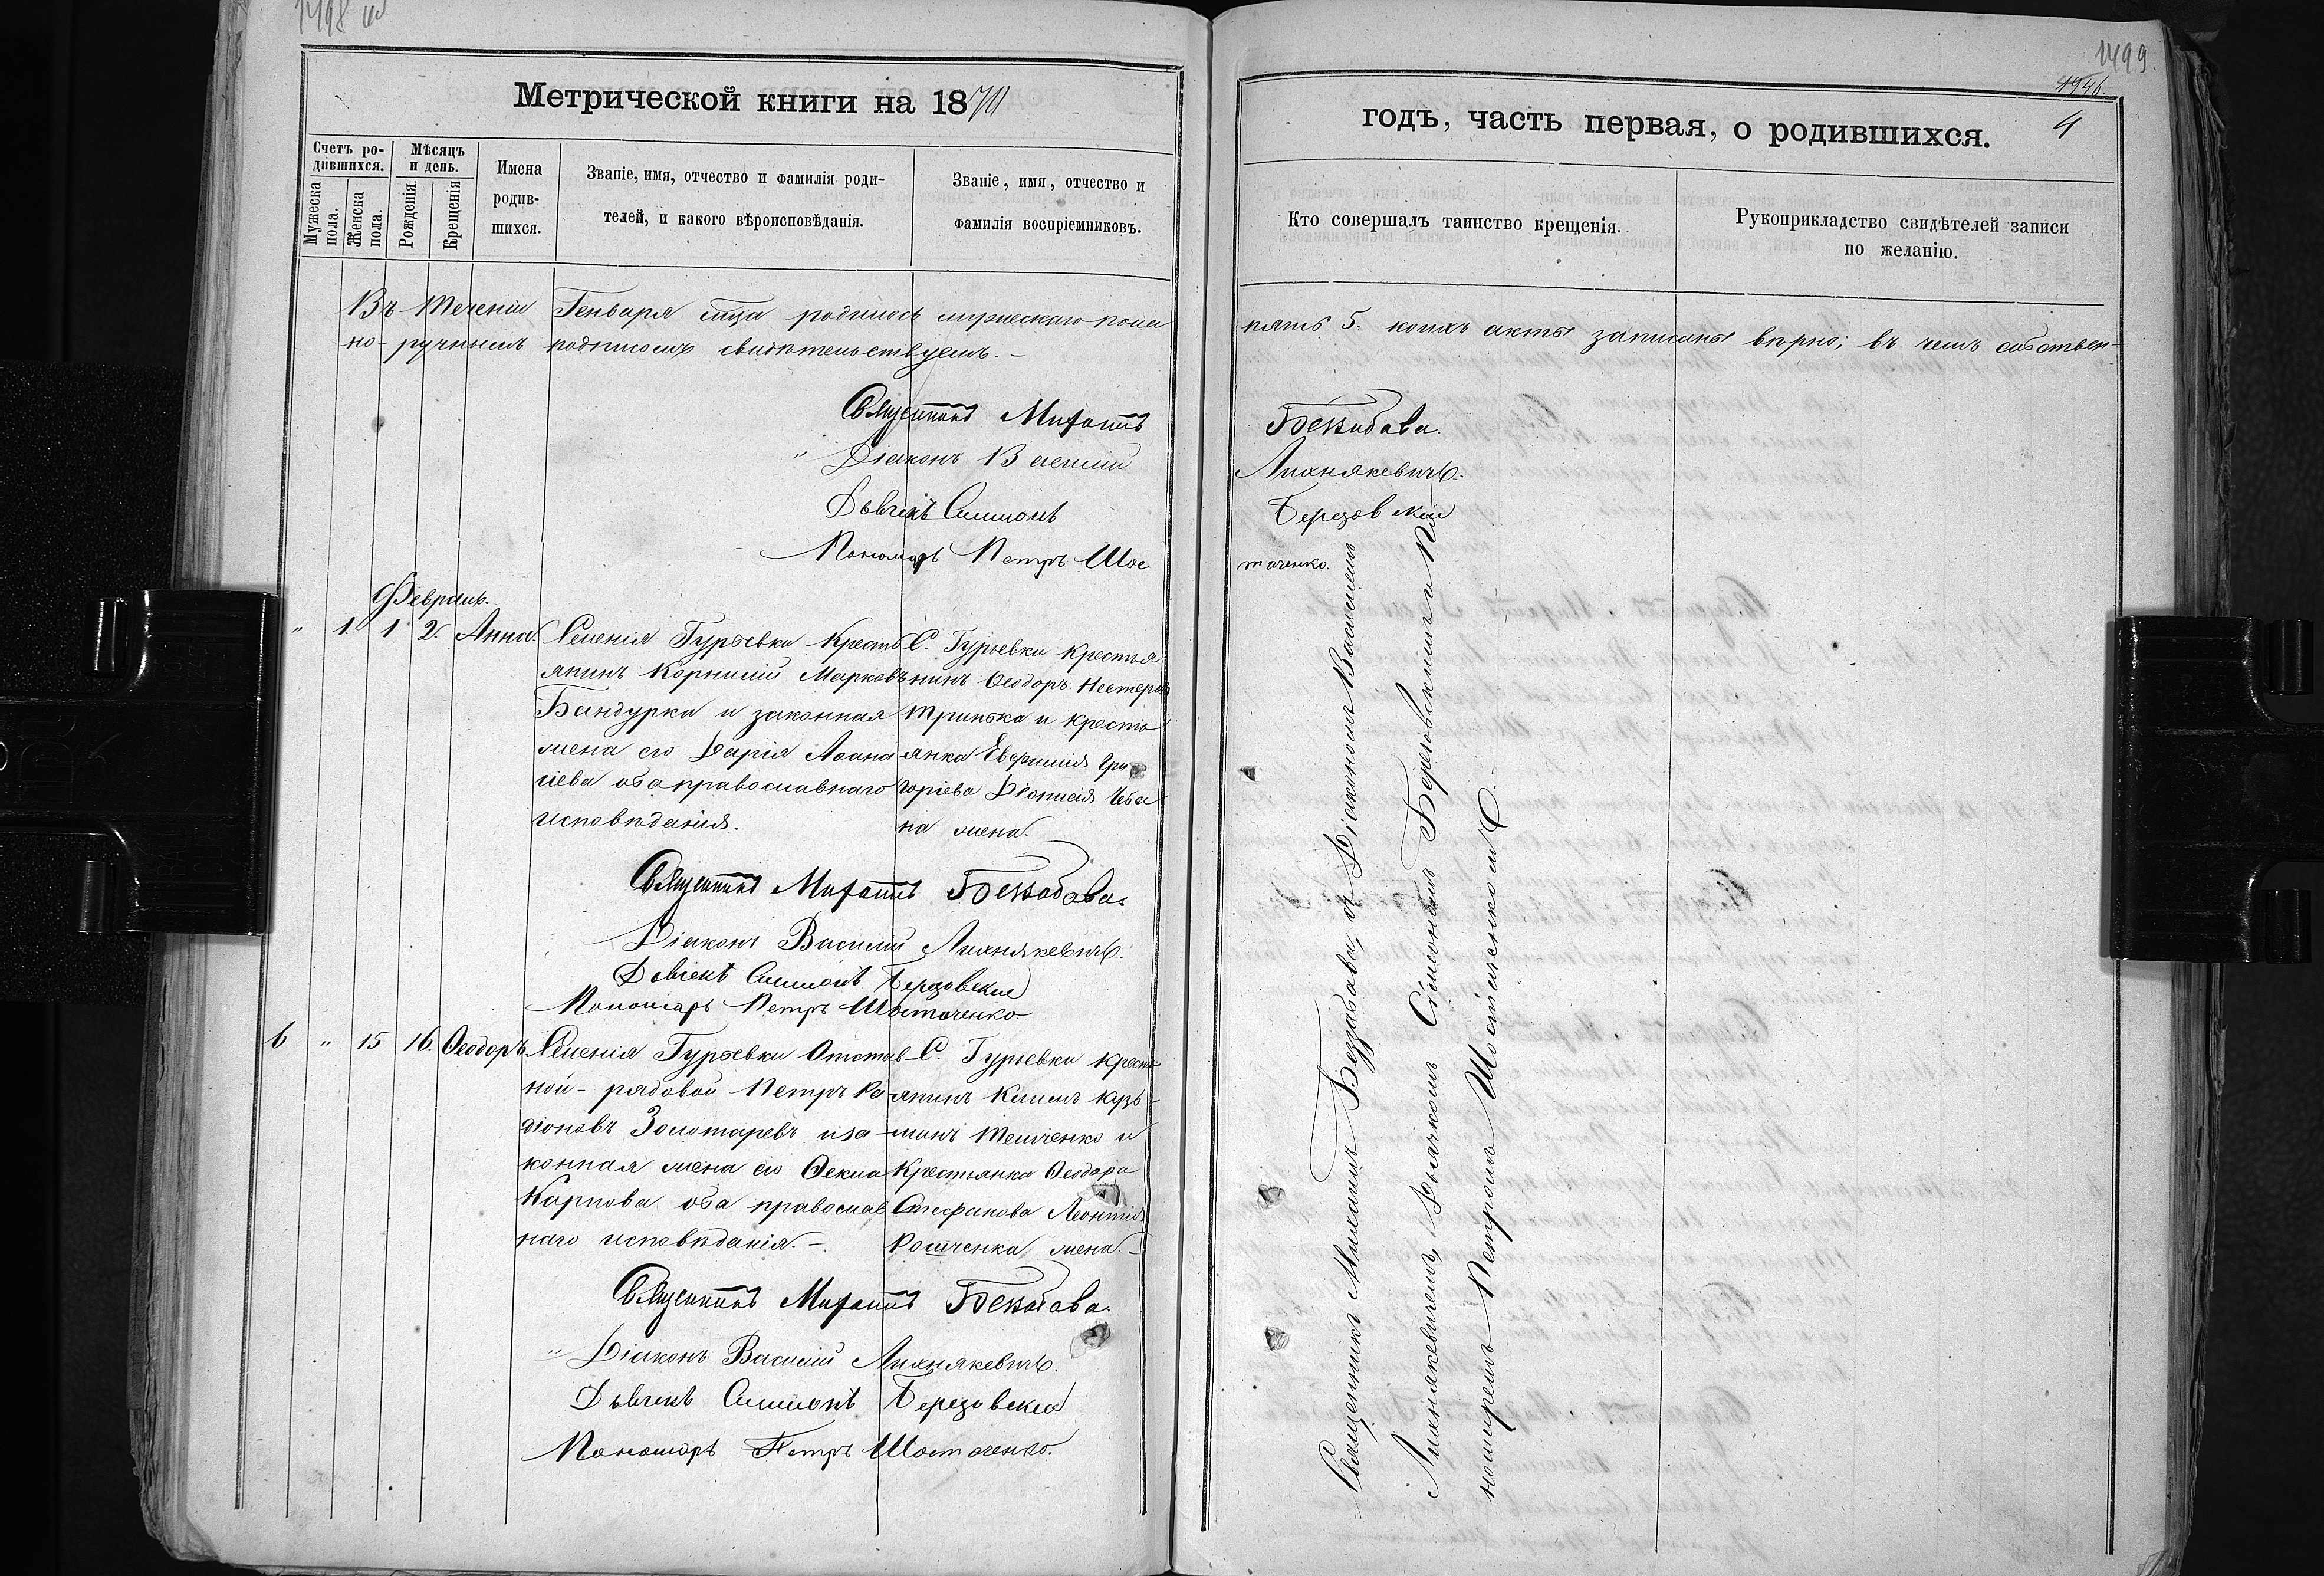 1498 об
Метрической книги на 1870
Счетъ ро-
дившихся.
Мѣсяцъ
и день.
Имена
родив-
шихся.
Мужеска
пола.
Женска
пола.
Рожденія.
Крещенія
Званіе, имя, отчество и фамилія роди-
телей, и какого вѣроисповѣданія.
Званіе, имя, отчество и
фамилія воспріемниковъ.
Въ течении Генваря м͠ца родилось мужескаго пола
но-ручнымъ подписомъ свидѣтельствуемъ. —
Священникъ Михаилъ
" Діаконъ Василій
Дьячекъ Симеонъ
Пономарь Петръ Шос
Февраль.
" 1. 1 2. Анна.
Селенія Гурьевки Кресть
янинъ Корнилій Марковъ
Бандурка и законная
жена его Дарія Аѳана
сіева оба православнаго
исповѣданія.
С. Гурьевки Крестья
нинъ Ѳеодоръ Нестеровъ
Тринька и кресть
янка Евфимія Гри
горіева Діонисія Чеба
на жена.
Священникъ Михаилъ Беззабава.
Діаконъ Василій Лихнякевичъ.
Дьячекъ Симеонъ Березовскій
Пономарь Петръ Шостаченко.
6 " 15 16. Ѳеодоръ
Селенія Гурьевки Отстав
ной-рядовой Петръ Ра
діоновъ Золотаревъ и за-
конная жена его Ѳекла
Карпова оба православ
наго исповѣданія. —.
С. Гурьевки кресть
янинъ Климъ Кузь-
минъ Темченко и
Крестьянка Ѳеодора
Стефанова Леонтія
Ромченка жена. —
Священникъ Михаилъ Беззабава.
" Діаконъ Василій Лихнякевичъ.
Дьячекъ Симеонъ Березовскій
Пономарь Петръ Шостаченко.
1499.
4
годъ, часть первая, о родившихся.
Кто совершалъ таинство крещенія.
Рукоприкладство свидѣтелей записи
по желанію.
пять 5. коихъ акты записаны вѣрно; въ чемъ собствен-
Беззабава.
Лихнякевичъ.
Березовскій
таченко.
Священникъ Михаилъ Беззабава, съ Діакономъ Василіемъ
Лихнякевичемъ, Дьячкомъ Сімеономъ Березовскимъ и По
номаремъ Петромъ Шостаченкомъ. —